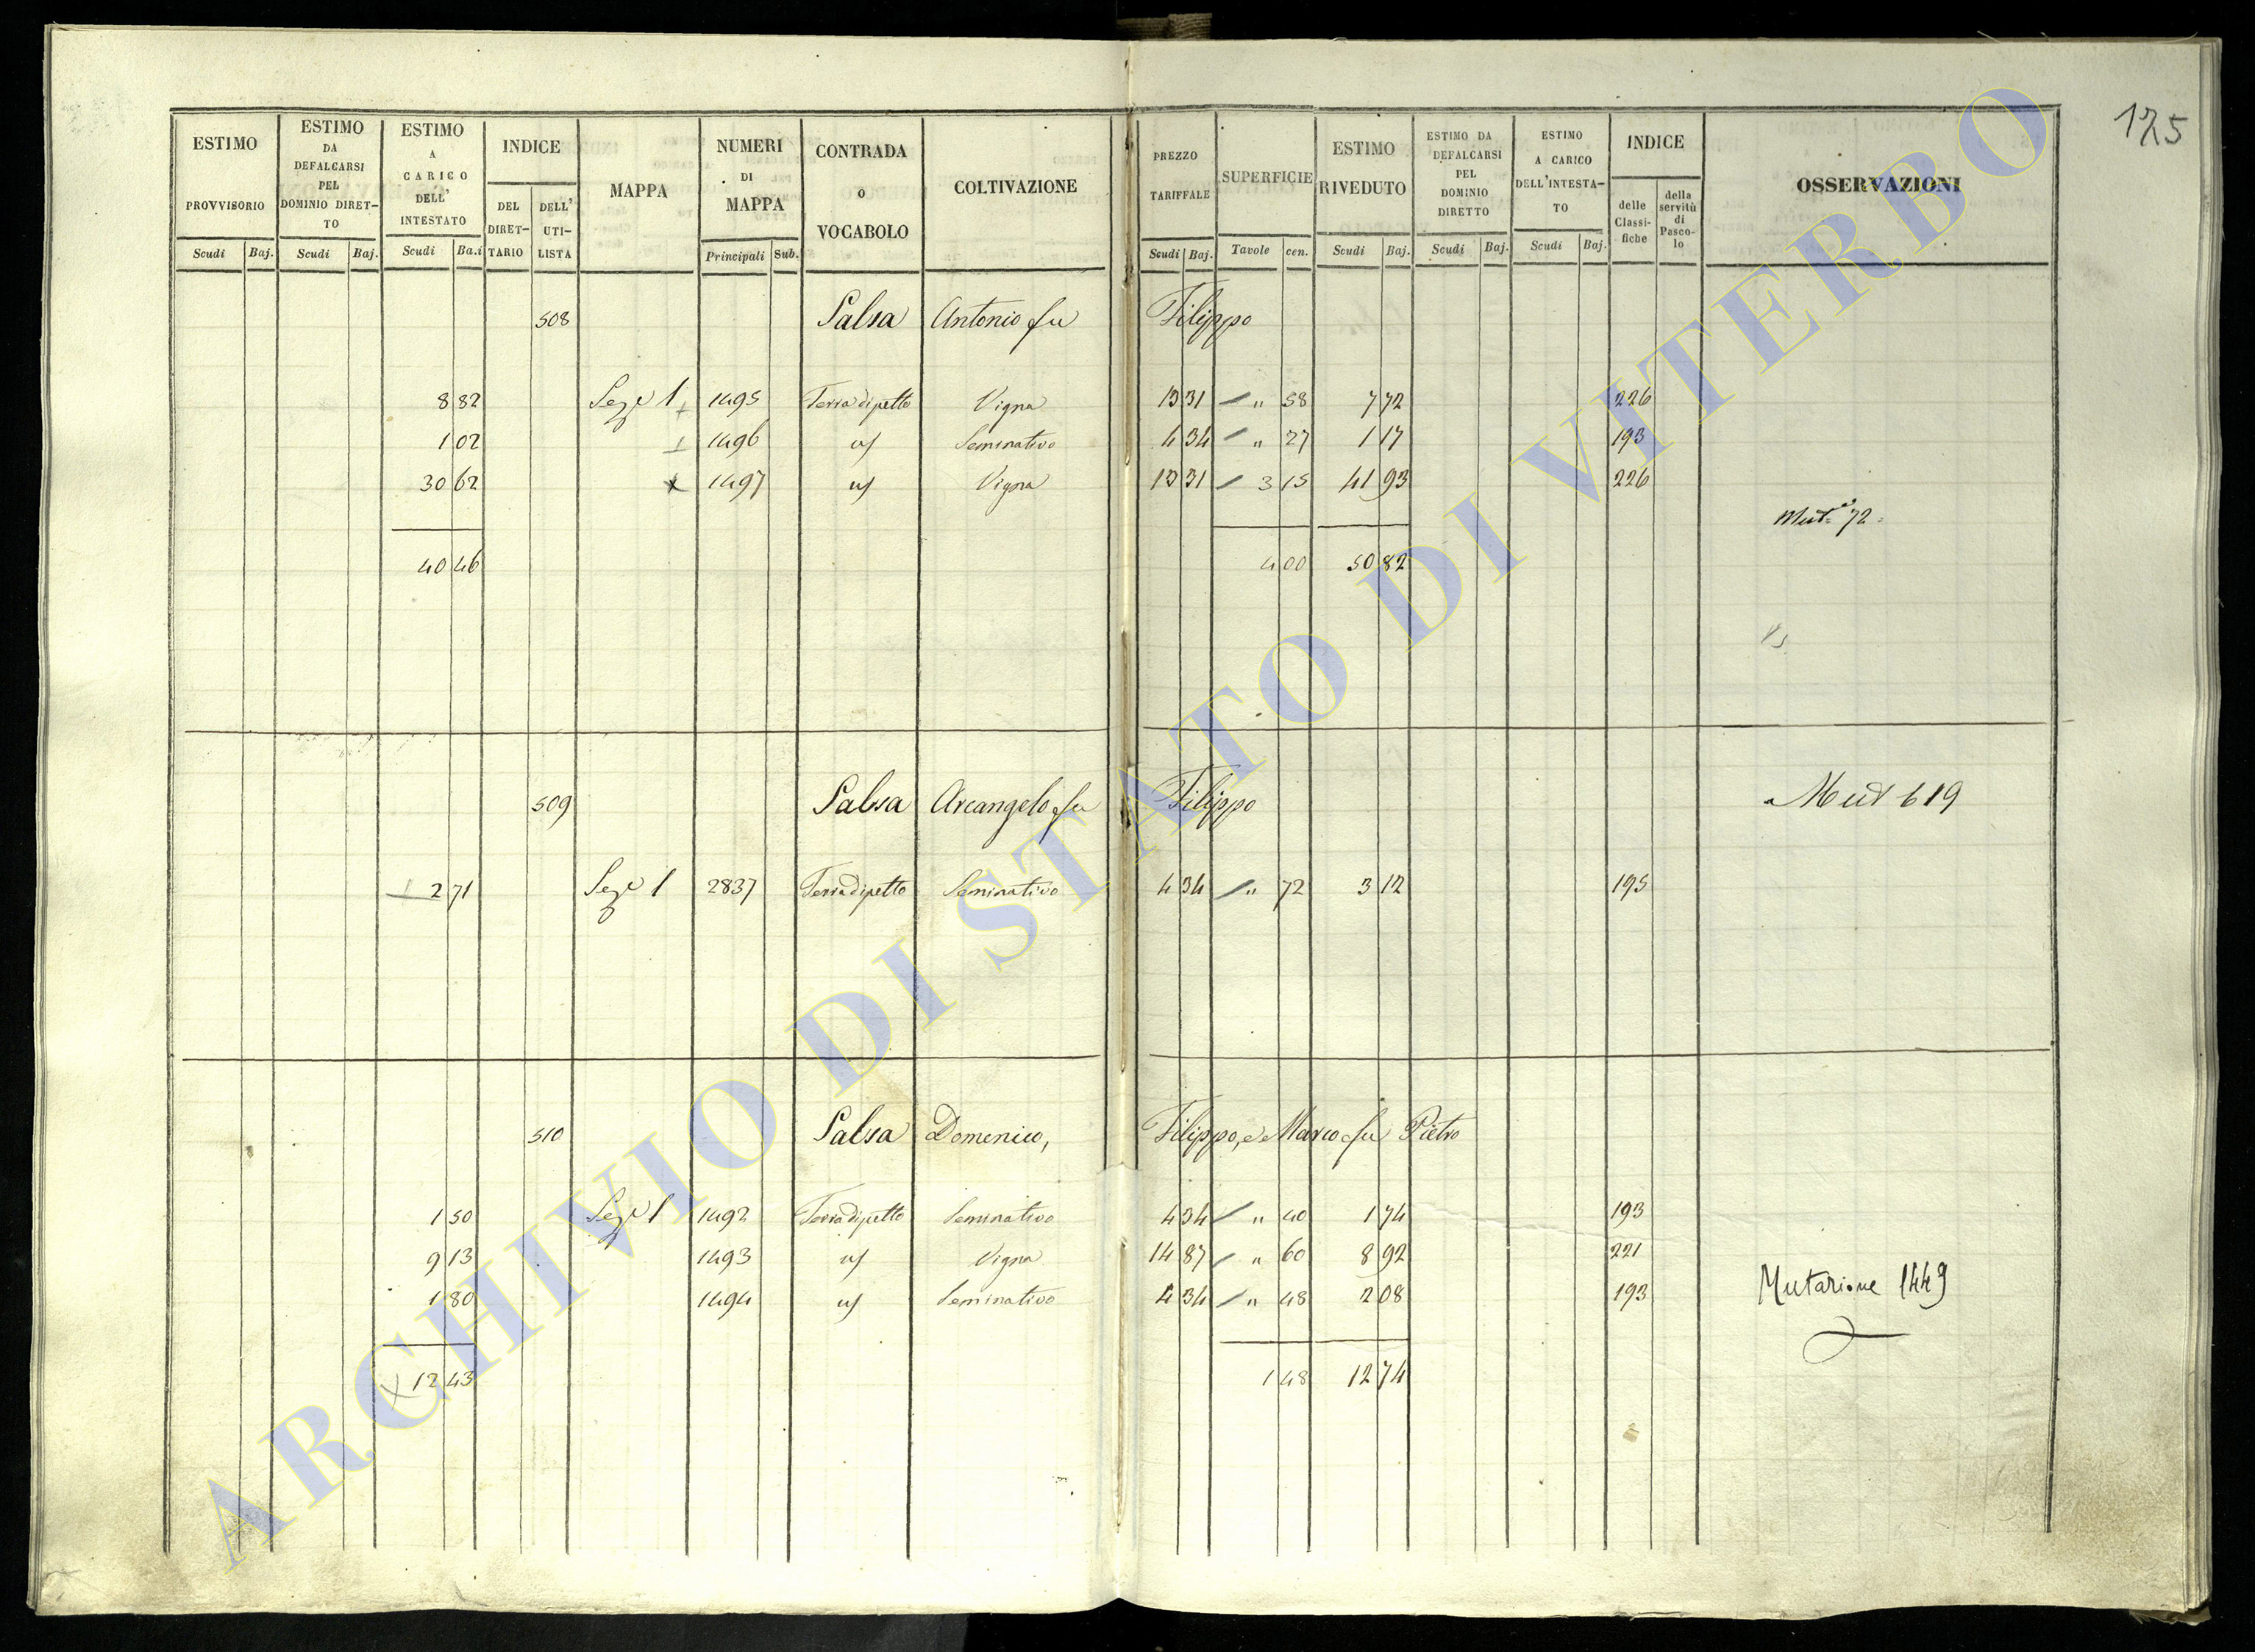 175
ESTIMO PROVVISORIO Scudi Baj.
ESTIMO DA DEFALCARSI PEL DOMINIO DIRET-TO Scudi Baj.
ESTIMO A CARICO DELL' INTESTATO Scudi Ba.i
INDICE DEL DIRET-TARIO DELL' UTI-LISTA
MAPPA
NUMERI DI MAPPA Principali Sub.
CONTRADA o VOCABOLO
COLTIVAZIONE
PREZZO TARIFFALE Scudi Baj.
SUPERFICIE Tavole cen.
ESTIMO RIVEDUTO Scudi Baj.
ESTIMO DA DEFALCARSI PEL DOMINIO DIRETTO Scudi Baj.
ESTIMO A CARICO DELL'INTESTA-TO Scudi Baj.
INDICE delle Classi-fiche della servitù di Pasco-lo
OSSERVAZIONI
508 Salsa Antonio fu Filippo
8 82 Seze 1 1495 Terra di petto Vigna 13 31 " 58 7 72 226
1 02 1496 id Seminativo 4 34 " 27 1 17 193
30 62 1497 id Vigna 13 31 3 15 41 93 226
Mutе 72
40 46 4 00 50 82
509 Salsa Arcangelo fu Filippo Mut 619
2 71 Seze 1 2837 Terra di petto Seminativo 4 34 " 72 3 12 195
510 Salsa Domenico, Filippo, e Marco fu Pietro
1 50 Seze 1 1492 Terra di petto Seminativo 4 34 " 40 1 74 193
9 13 1493 id Vigna 14 87 " 60 8 92 221
1 80 1494 id Seminativo 4 34 " 48 2 08 193
Mutazione 1449
12 43 1 48 12 74
ARCHIVIO DI STATO DI VITERBO